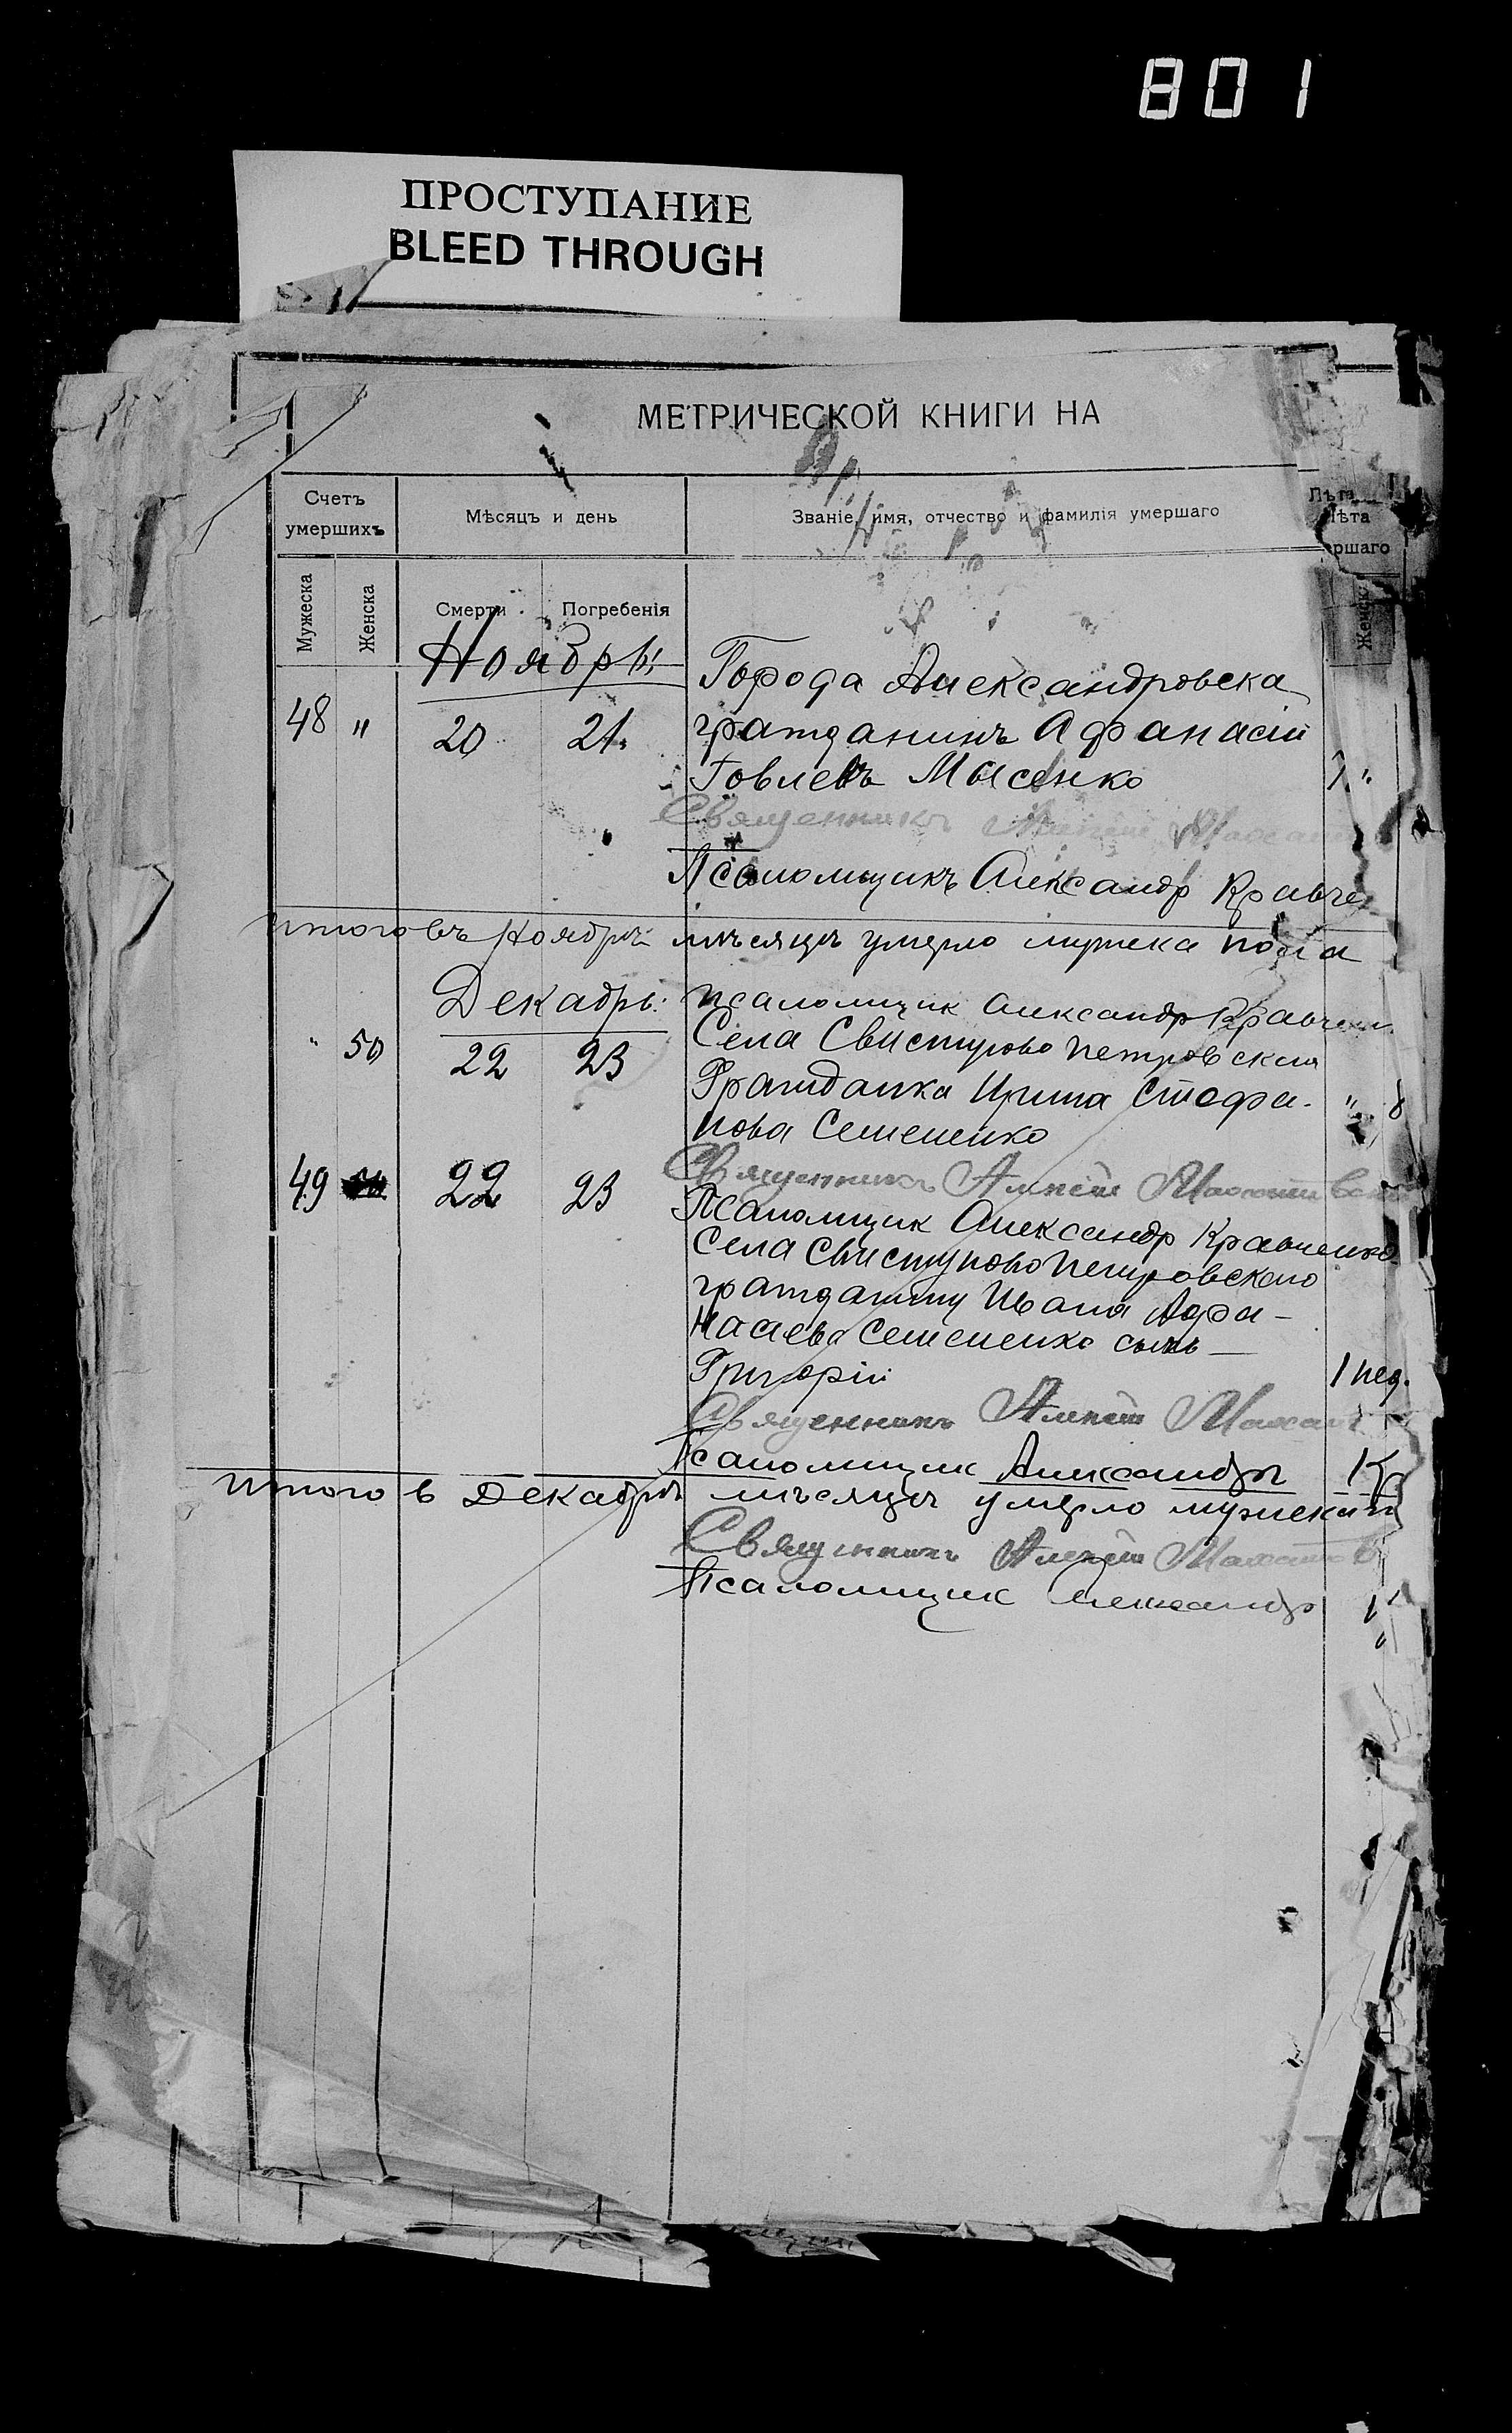 801
ПРОСТУПАНИЕ
BLEED THROUGH
МЕТРИЧЕСКОЙ КНИГИ НА
Счетъ умершихъ
Мѣсяцъ и день
Званіе, имя, отчество и фамилія умершаго
Лѣта
Лѣта
ршаго
Мужеска
Женска
Смерти
Погребенія
Женска
Ноябрь:
Города Александровска
48 " 20 21. гражданинъ Афанасій
Мысенко
Священникъ
Псаломщикъ Александр Кравче
Итого въ Ноябрѣ мѣсяцѣ умерло мужска пола
Декабрь: Псаломщик Александр Кравчен
" 50 22 23 Села Свистуново Петровская
Гражданка Ирина Стефа- "
нова Семененко
49 22 23 Священникъ Алексій
Псаломщик Александр Кравченко
Села Свистуново Петровскаго
гражданину Ивана Афа-
насаева Семененко сынъ
Григорій 1 нед.
Священникъ Алексій
Псаломщик Александръ Кр
Итого в Декабрѣ мѣсяцѣ умерло мужска п
Священникъ Алексій
Псаломщик Александр